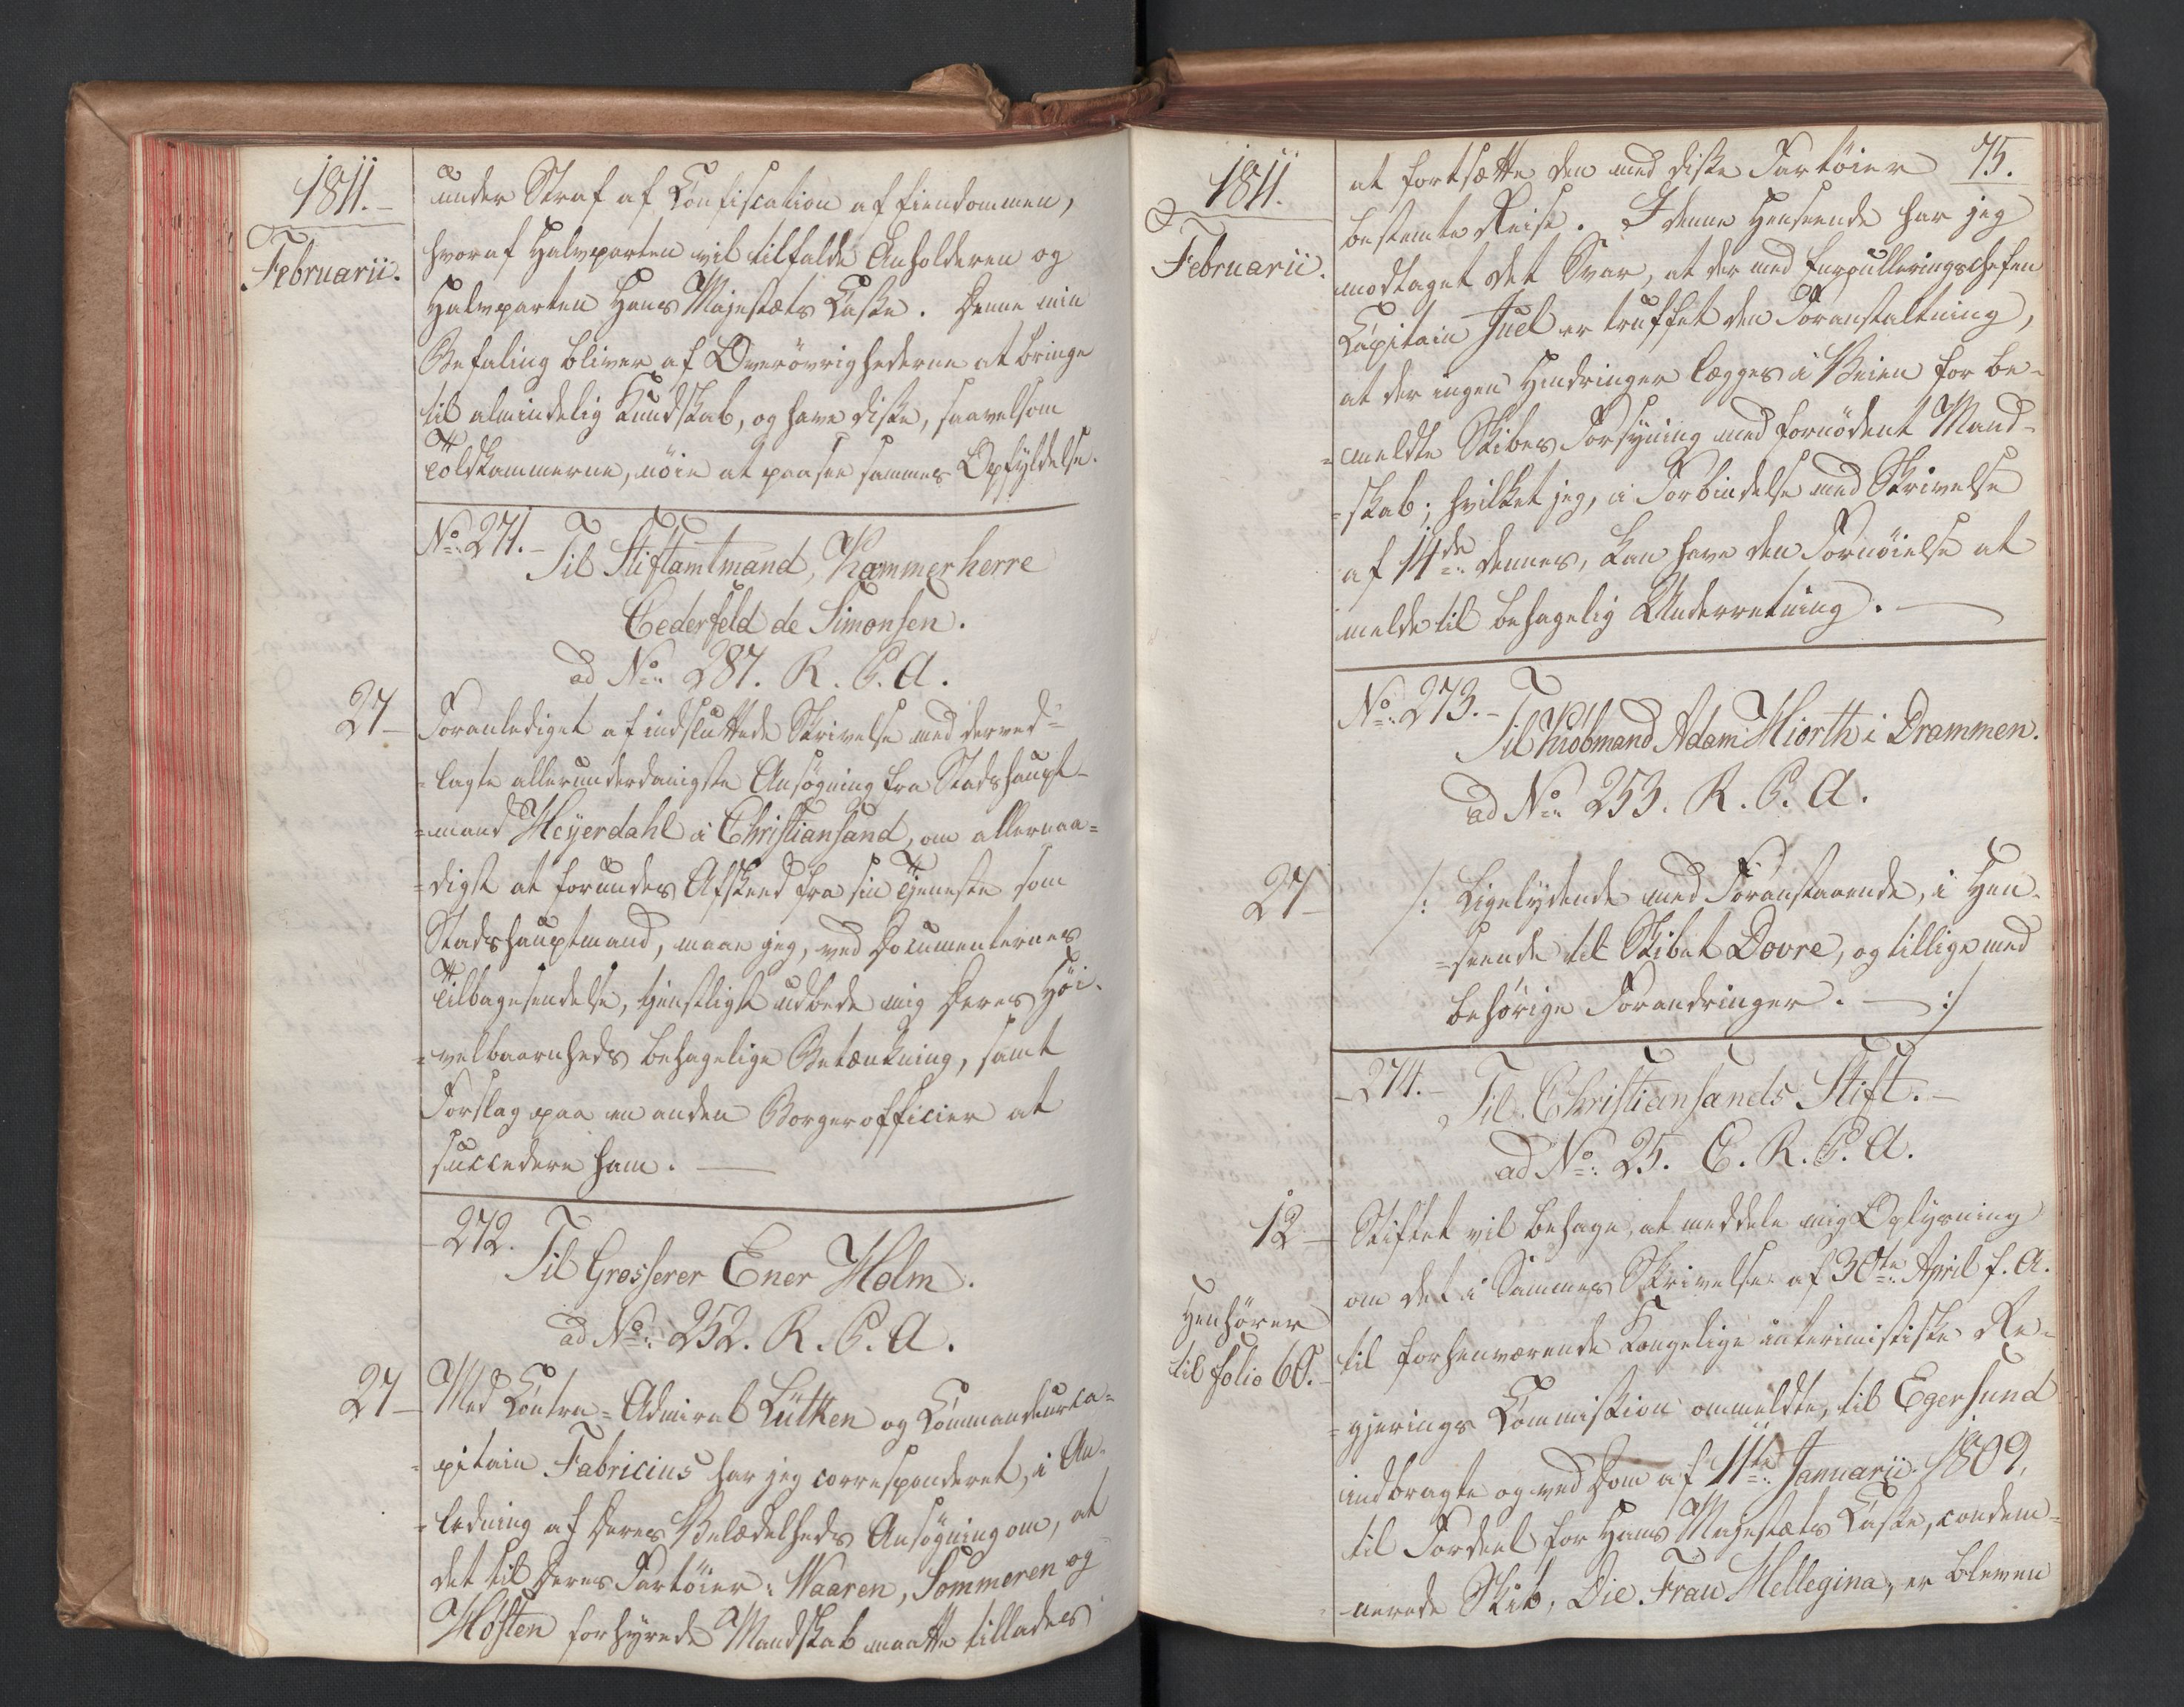 1811.
Februarii.
under Straf af Confiscation af Eiendommen,
hvoraf Halvparten vil tilfalde Anholderen og
Halvparten Hans Majestæts Casse. Denne min
Befaling bliver af Overøvrighederne at bringe
til almindelig Kundskab, og have disse, saavelsom
Toldkammerne, nøie at paasee sammes Opfyldelse.
No. 271. Til Stiftamtmand, Kammerherre
Cederfeld de Simonsen.
ad No. 287. R. P. A.
27 Foranlediget af indsluttede Skrivelse med derved-
=lagte allerunderdanigste Ansøgning fra Stadshaupt-
=mand Heyerdahl i Christiansand, om allernaa=
=digst at forundes Afskeed fra sin Tjeneste som
Stadshauptmand, maae jeg, ved Documenternes
Tilbagesendelse, tjenstligst udbede mig Deres Høi-
=velbaarenheds behagelige Betænkning, samt
Forslag paa en anden Borgerofficier at
succedere ham.
272. Til Grosserer Ener Holm.
ad No. 252. R. P. A.
27 Med Contra=Admiral Lütken og Commandeurca=
=pitain Fabricius har jeg correspenderet, i An-
=ledning af Deres Velædelheds Ansøgning om, at
det til Deres Fartøier: Vaaren, Sommeren og
Høsten forhyrede Mandskab maatte tillades
1811.
Februarii.
75.
at fortsætte den med disse Fartøier
bestemte Reise. I denne Henseende har jeg
modtaget det Svar, at der med Enroulleringschefen
Capitain Juel er truffet den Foranstaltning,
at der ingen Hindringer lægges i Veien for be-
=meldte Skibes Forsyning med fornødent Mand-
=skab; hvilket jeg, i Forbindelse med Skrivelse
af 14de dennes, kan have den Fornøielse at
melde til behagelig Underretning.
No. 273. Til Kiøbmand Adam Hiorth i Drammen.
ad No. 253. R. P. A.
27 /: Ligelydende med Foranstaaende, i Hen-
=seende til Skibet Dovre, og tillige med
behørige Forandringer. :/
274. Til Christiansands Stift.
ad No. 25. C. R. P. A.
12 Stiftet vil behage, at meddele mig Oplysning
om det i Sammes Skrivelse af 30te April f. A.
Henhører
til folio 60.
til forhenværende Kongelige interimistiske Re-
=gjerings Commission ommeldte, til Egersund
indbragte og ved Dom af 11te Januarii 1809,
til Fordeel for Hans Majestæts Casse, condem=
nerede Skib, Die Frau Hellegina, er bleven